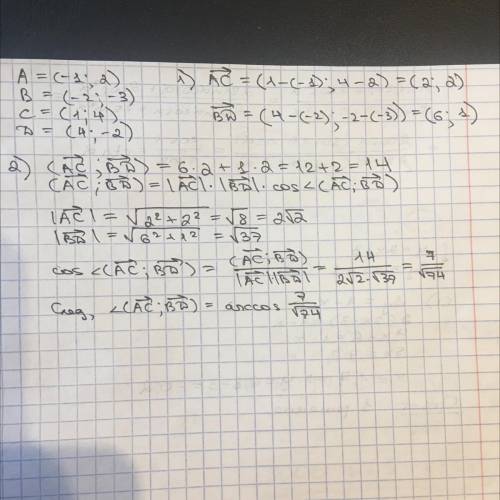 A = (-1; 2)
B = (-2; -3)
C = (1; 4),
D = (4; -2)
1) AC = (1-(-1); 4-2) = (2; 2)
BD = (4-(-2); -2-(-3)) = (6; 1)
2) (AC; BD) = 6·2 + 1·2 = 12+2 = 14
(AC; BD) = |AC|·|BD|·cos∠(AC; BD)
|AC| = √(2²+2²) = √8 = 2√2
|BD| = √(6²+1²) = √37
cos∠(AC; BD) = (AC; BD) / |AC||BD| = 14 / 2√2·√37 = 7 / √74
След, ∠(AC; BD) = arccos 7/√74